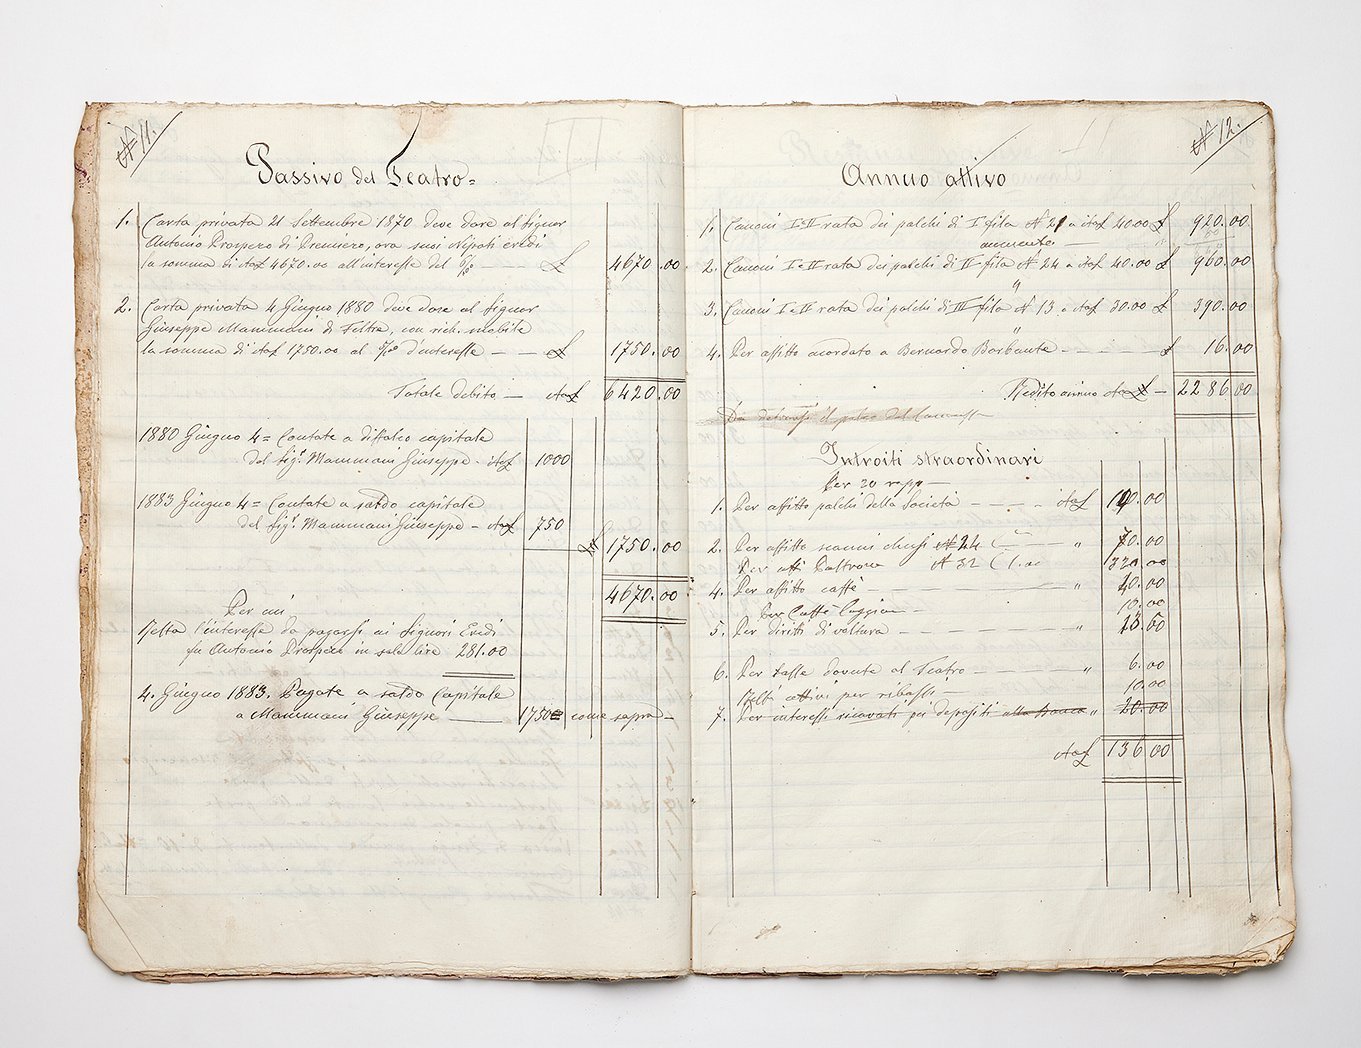 N 11.
Passivo del Teatro =
1. Carta privata 21 Settembre 1870 deve dare al Signor
Antonio Prospero di Premiero, ora suoi Nipoti eredi
la somma di 4670.00 all'interesse del 6/% £ 4670.00
2. Carta privata 4 Giugno 1880 deve dare al Signor
Giuseppe Mammani di Feltre, con rich. mobile
la somma di 1750.00 al d'interesse £ 1750.00
Totale debito — 6420.00
1880 Giugno 4 = Contate a diffalco capitale
del Sig.r Mammani Giuseppe. 1000
1883 Giugno 4 = Contate a saldo capitale
del Sig.r Mammani Giuseppe — 750
£ 1750.00
4670.00
Per cui
Resta l'interesse da pagarsi ai Signori Eredi
fu Antonio Prospero in sole lire 281.00
4. Giugno 1883. Pagate a saldo Capitale
a Mammani Giuseppe 1750 come sopra —
N 12.
Annuo attivo
1. Canoni I e II rata dei palchi di I fila N 21 a 40.00 £ 920.00
aumento —
2. Canoni I e II rata dei palchi di II fila N 24 a 40.00 £ 960.00
3. Canoni I e II rata dei palchi di III fila N 13 a 30.00 £ 390.00
4. Per affitto acordato a Bernardo Barbante £ 16.00
Redito annuo — 2286.00
Da detrarsi il palco del
Introiti straordinari
Per 20 rapp —
1. Per affitto palchi della Società .00
2. Per affitto scanni chiusi N 24 " 70.00
Per Poltrone N 32 1.00 320.00
4. Per affitto caffè " 40.00
per Caffè Loggion — 10.00
5. Per diritti di veltura "
6. Per tasse dovute al Teatro " 6.00
Resti attivi per ribassi — 10.00
7. Per interessi ricavati pei depositi alla banca " 20.00
136.00